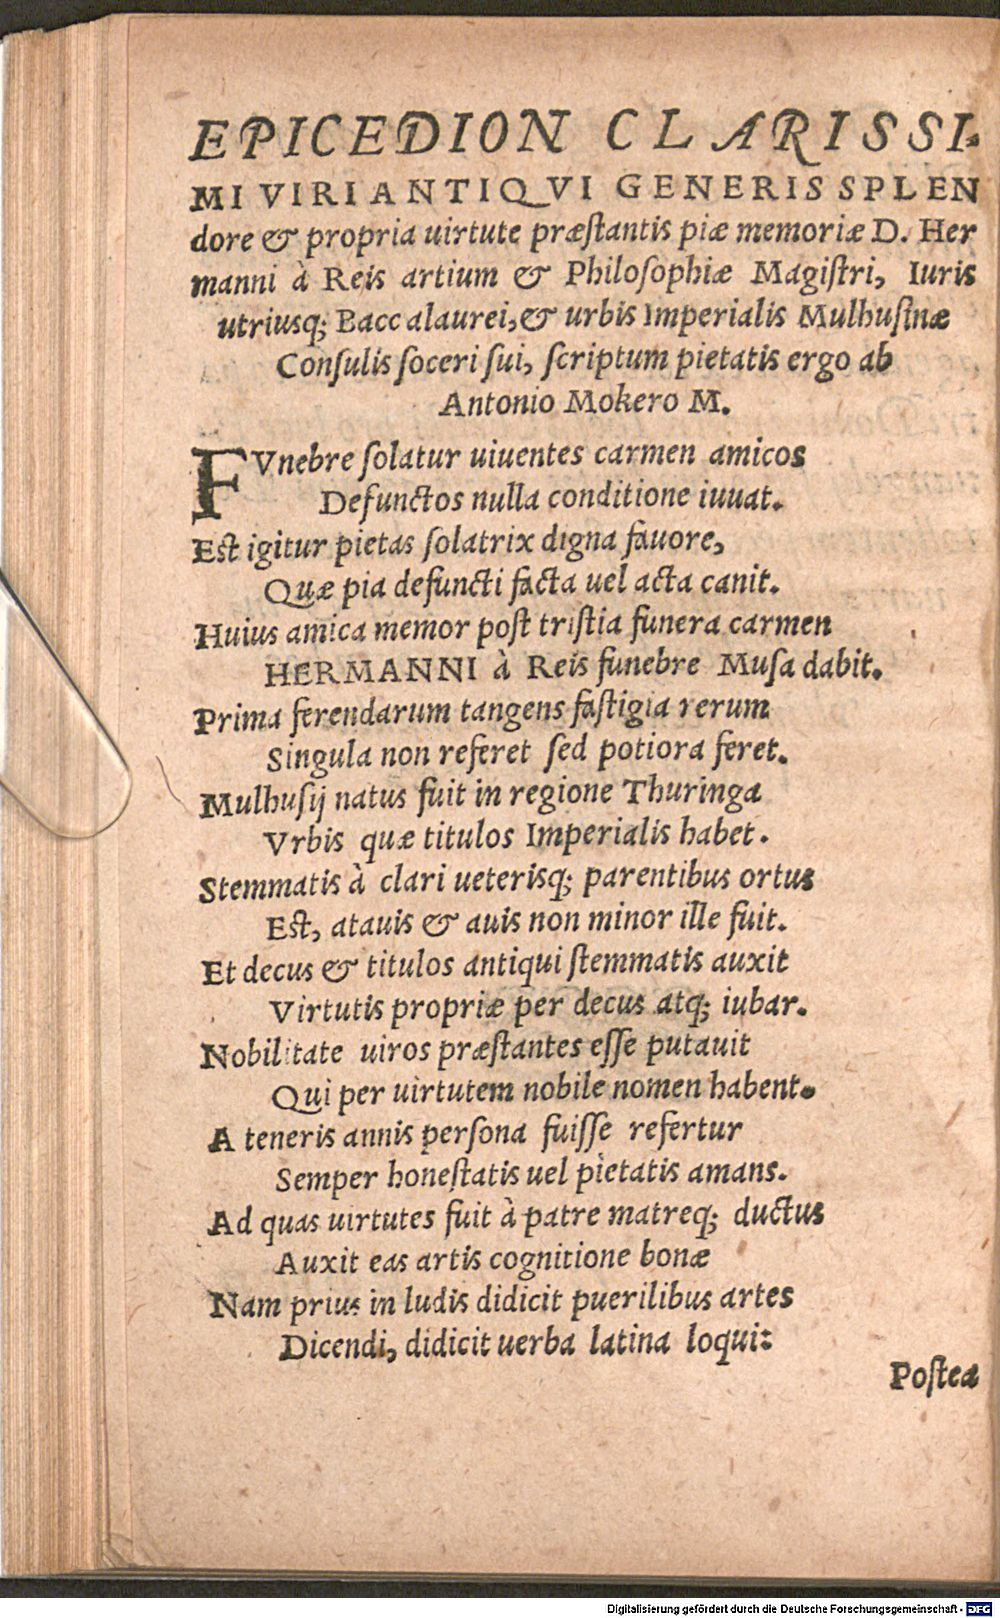 EPICEDION CLARISSI-
MI VIRI ANTIQVI GENERIS SPLEN
dore & propria uirtute præſtantis piæ memoriæ D. Her
manni à Reis artium & Philoſophiæ Magiſtri, Iuris
utriusq; Baccalaurei, & urbis Imperialis Mulhuſinæ
Conſulis ſoceri ſui, ſcriptum pietatis ergo ab
Antonio Mokero M.
FVnebre ſolatur uiuentes carmen amicos
Defunctos nulla conditione iuuat.
Eſt igitur pietas ſolatrix digna fauore,
Quæ pia defuncti facta uel acta canit.
Huius amica memor poſt triſtia funera carmen
HERMANNI à Reis funebre Muſa dabit.
Prima ferendarum tangens faſtigia rerum
Singula non referet ſed potiora feret.
Mulhuſij natus fuit in regione Thuringa
Vrbis quæ titulos Imperialis habet.
Stemmatis à clari ueterisq; parentibus ortus
Eſt, atauis & auis non minor ille fuit.
Et decus & titulos antiqui ſtemmatis auxit
Virtutis propriæ per decus atq; iubar.
Nobilitate uiros præſtantes eſſe putauit
Qui per uirtutem nobile nomen habent.
A teneris annis perſona fuiſſe refertur
Semper honeſtatis uel pietatis amans.
Ad quas uirtutes fuit à patre matreq; ductus
Auxit eas artis cognitione bonæ
Nam prius in ludis didicit puerilibus artes
Dicendi, didicit uerba latina loqui:
Poſtea
Digitalisierung gefördert durch die Deutsche Forschungsgemeinschaft - DFG